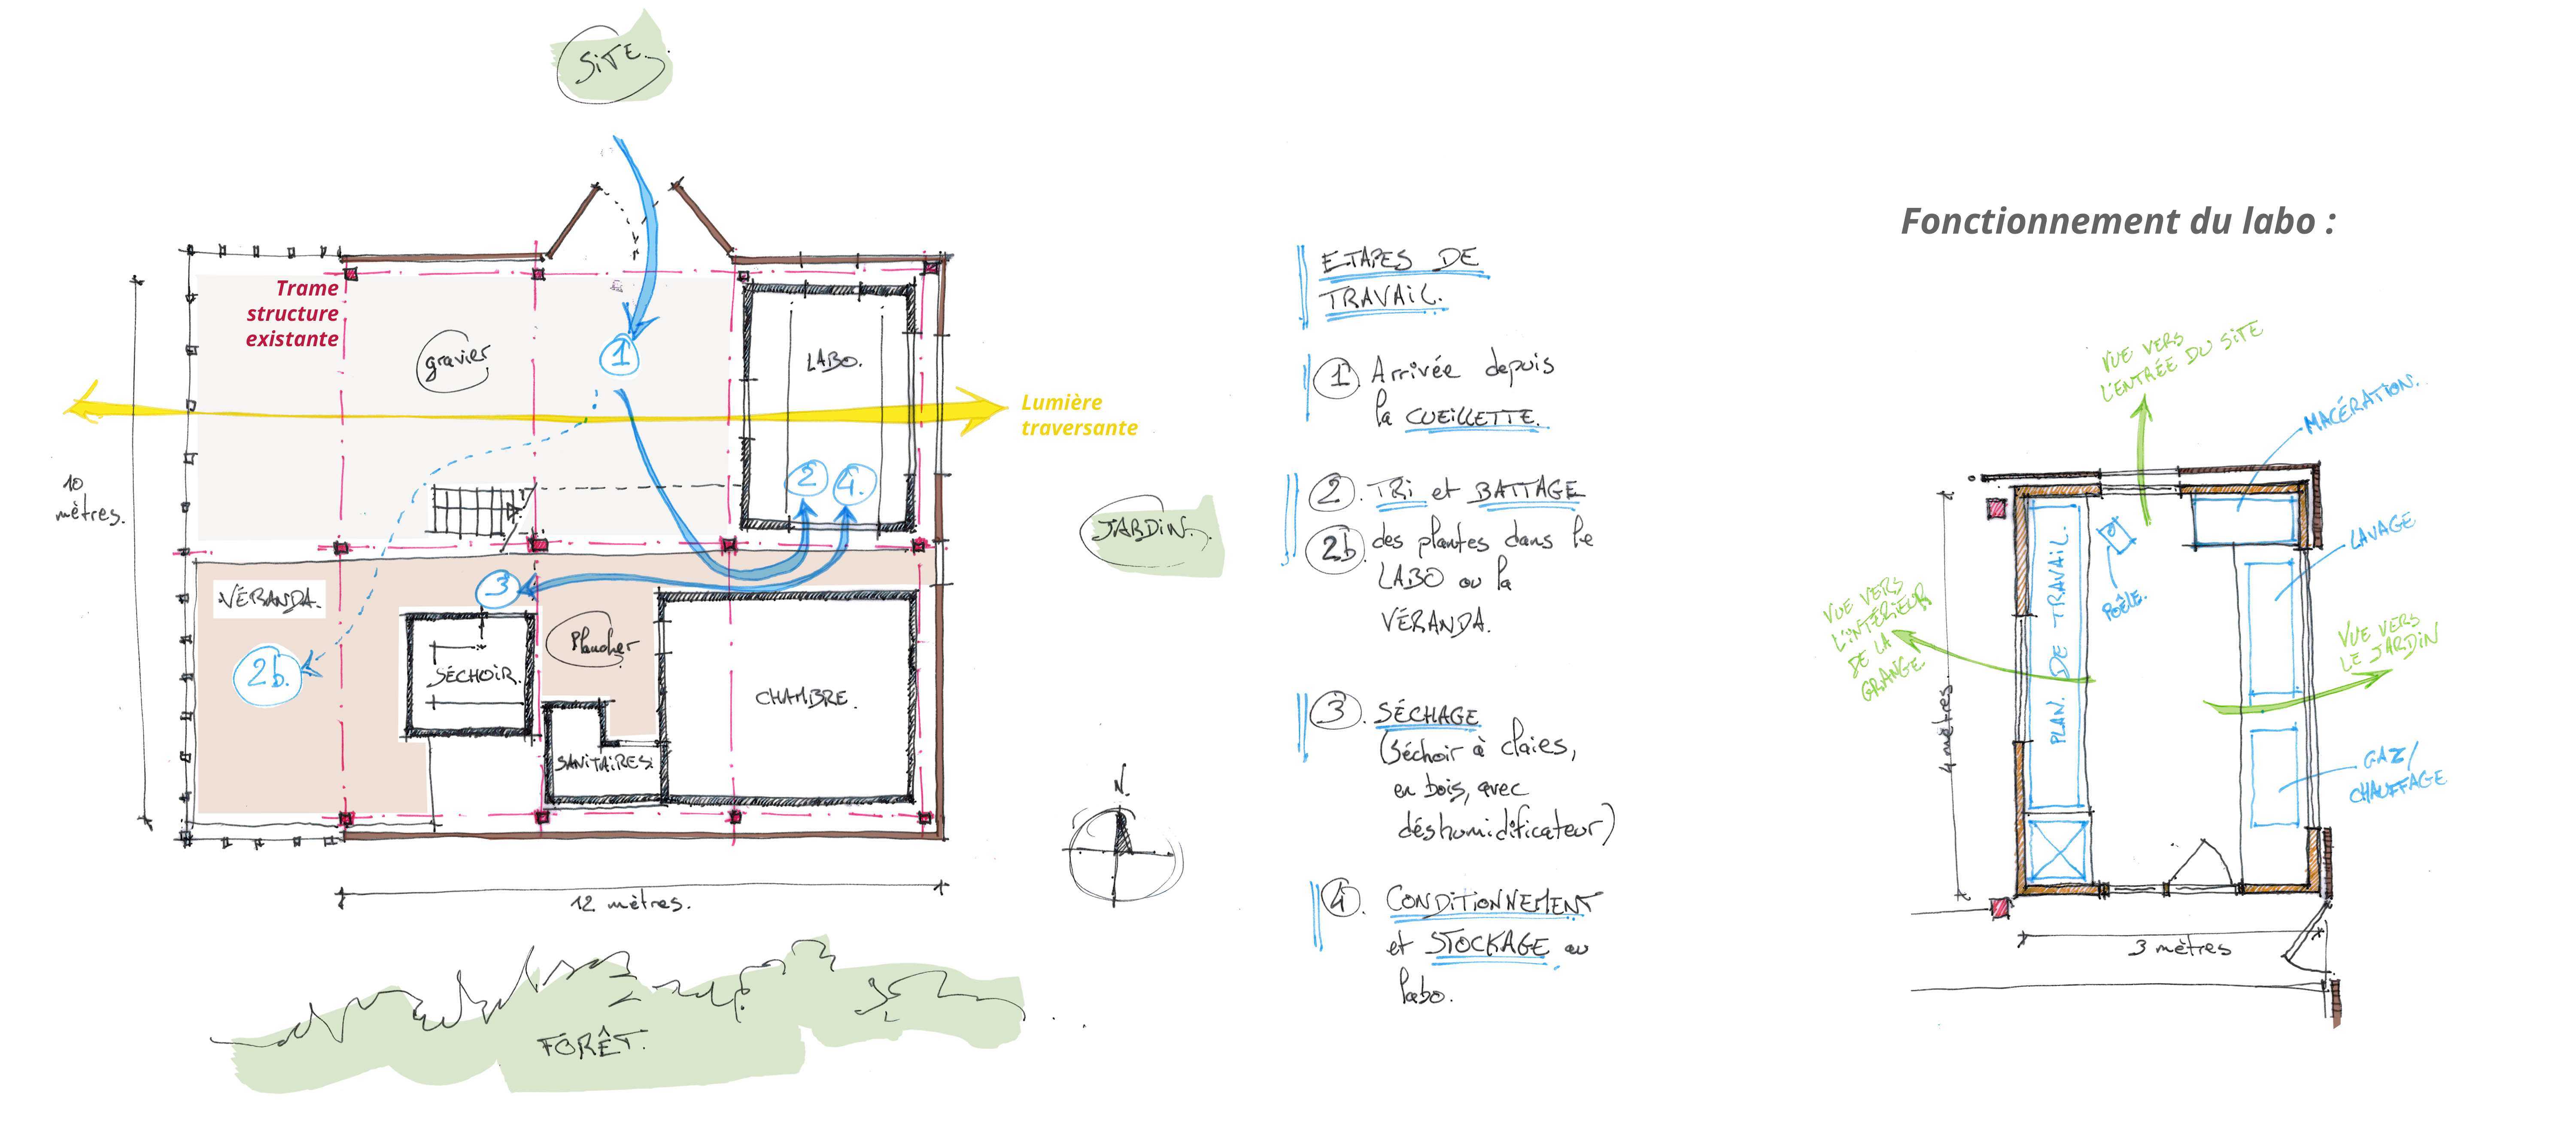 SITE.
Trame
structure
existante
gravier
1
LABO.
Lumière
traversante
10
mètres.
2
4.
JARDIN.
3
VÉRANDA.
Plancher
2b.
SÉCHOIR.
CHAMBRE.
SANITAIRES.
N.
12 mètres.
FORÊT.
ETAPES DE
TRAVAIL.
1 Arrivée depuis
la CUEILLETTE.
2. TRI et BATTAGE
2b des plantes dans le
LABO ou la
VÉRANDA.
3. SÉCHAGE
(Séchoir à claies,
en bois, avec
déshumidificateur)
4. CONDITIONNEMENT
et STOCKAGE au
labo.
Fonctionnement du labo :
VUE VERS
L'ENTRÉE DU SITE
MACÉRATION.
LAVAGE
PLAN DE TRAVAIL.
POÊLE.
VUE VERS
L'INTÉRIEUR
DE LA
GRANGE.
VUE VERS
LE JARDIN
4 mètres.
GAZ/
CHAUFFAGE
3 mètres